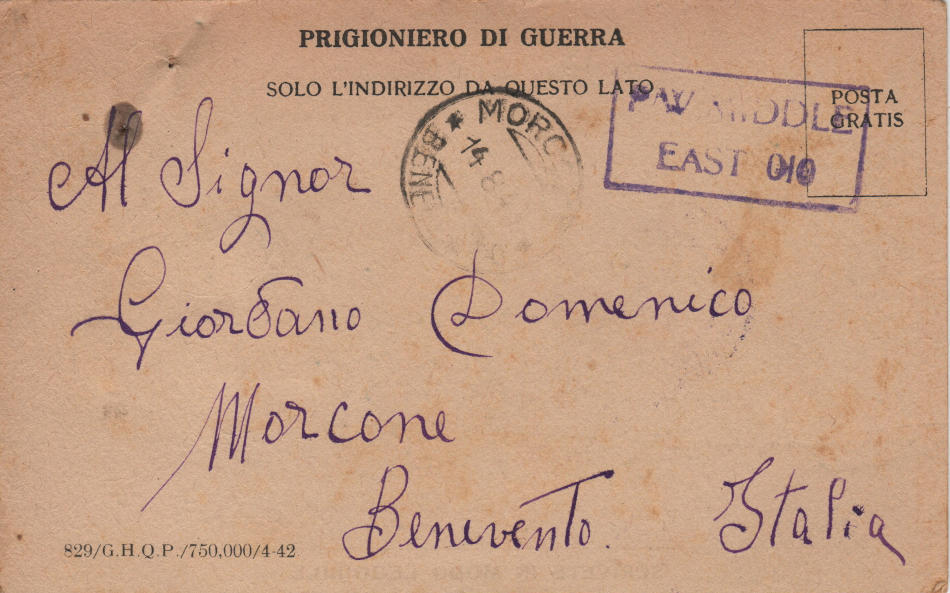 PRIGIONIERO DI GUERRA
SOLO L'INDIRIZZO DA QUESTO LATO
POSTA
GRATIS
MIDDLE
EAST
MORC
BENE
14 8
Al Signor
Giordano Domenico
Morcone
Benevento. Italia
829/G.H.Q.P./750,000/4-42